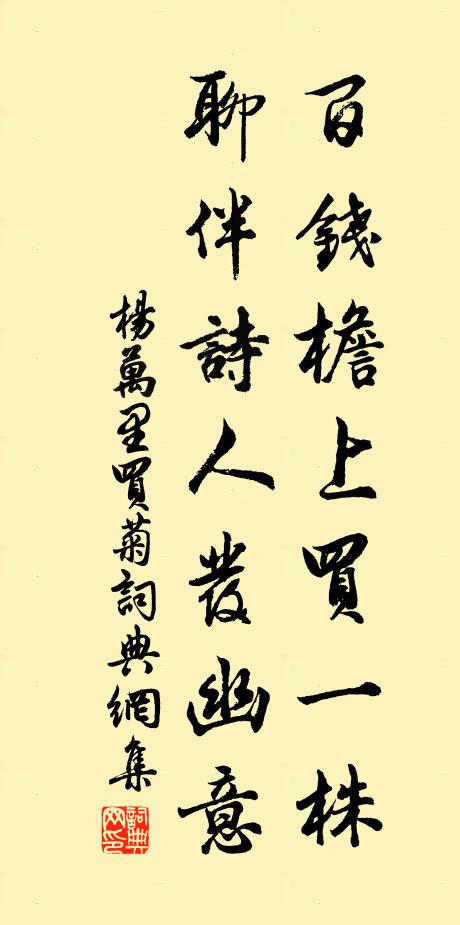 百錢檐上買一株
聊伴詩人發幽意
楊萬里買菊詞典網集
詞典网印